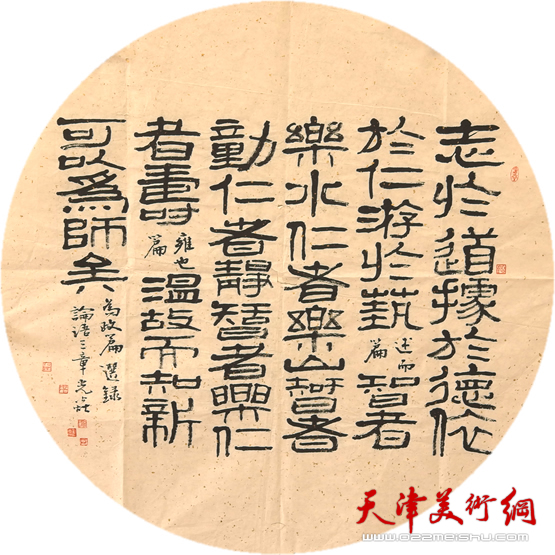 志於道據於德依
於仁游於藝 述而篇 智者
樂水仁者樂山智者
動仁者靜智者樂仁
者壽 雍也篇 溫故而知新
可以爲師矣
為政篇選録
論語三章
天津美術網
www.022meishu.com